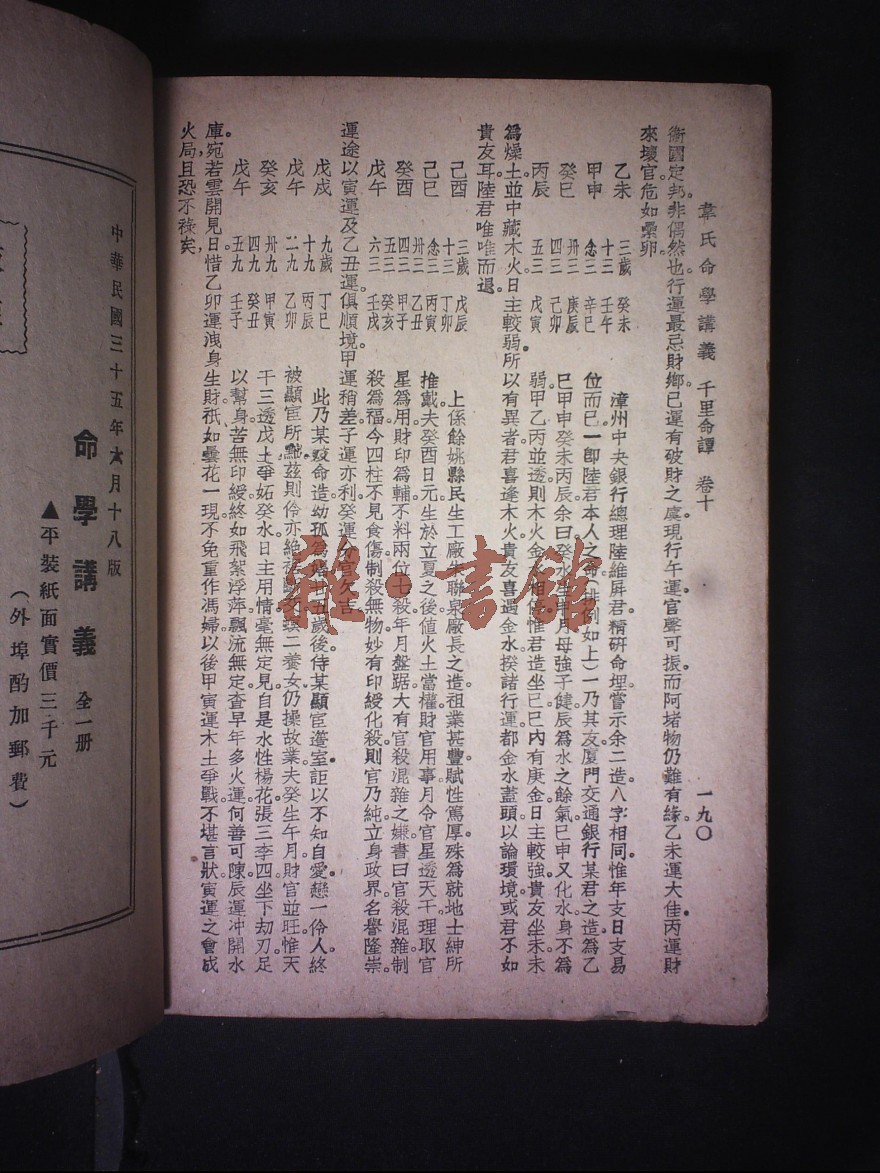 韋氏命學講義　千里命譚　卷十　一九〇
衞國定邦。非偶然也。行運最忌財鄉。巳運有破財之虞。現行午運。官聲可振。而阿堵物仍難有緣。乙未運大佳。丙運財
來壞官。危如纍卵。
乙未　三歲　癸未　漳州中央銀行總理陸維屏君。精研命理。嘗示余二造。八字相同。惟年支日支易
甲申　十三　壬午　位而已。一卽陸君本人之命(排例如上)一乃其友廈門交通銀行某君之造。爲乙
　　　念三　辛巳
癸巳　卅三　庚辰　巳甲申癸未丙辰。余曰。癸水生申月。母強子健。辰爲水之餘氣。巳申又化水。身不爲
　　　四三　己卯
丙辰　五三　戊寅　弱。甲乙丙並透。則木火金水相停。惟君造坐巳。巳內有庚金。日主較強。貴友坐未。未
爲燥土。並中藏木火。日主較弱。所以有異者。君喜逢木火。貴友喜遇金水。揆諸行運。都金水蓋頭。以論環境。或君不如
貴友耳。陸君唯唯而退。
己酉　三歲　戊辰　上係餘姚縣民生工廠朱聯泉廠長之造。祖業甚豐。賦性篤厚。殊爲就地士紳所
　　　十三　丁卯
己巳　念三　丙寅　推戴。夫癸酉日元。生於立夏之後。値火土當權。財官用事。月令官星透天干。理取官
　　　卅三　乙丑
癸酉　四三　甲子　星爲用。財印爲輔。不料兩位七殺。年月盤踞。大有官殺混雜之嫌。書曰。官殺混雜。制
　　　五三　癸亥
戊午　六三　壬戌　殺爲福。今四柱不見食傷。制殺無物。妙有印綬化殺。則官乃純。立身政界。名譽隆崇。
運途以寅運及乙丑運。俱順境。甲運稍差。子運亦利。癸運
戊戌　九歲　丁巳　此乃某
　　　十九　丙辰
戊午　二九　乙卯　被顯宦所
　　　卅九　甲寅
癸亥　四九　癸丑　干三透戊土。爭妬癸水。日主用情。毫無定見。自是水性楊花。張三李四。坐下劫刃。足
戊午　五九　壬子　以幫身。苦無印綬。終如飛絮浮萍。飄流無定。查早年多火運。何善可陳。辰運冲開水
庫。宛若雲開見日。惜乙卯運洩身生財。祇如曇花一現。不免重作馮婦。以後甲寅運。木土爭戰。不堪言狀。寅運之會成
火局。且恐不祿矣。
中華民國三十五年六月十八版
命學講義　全一册
▲平裝紙面實價三千元
(外埠酌加郵費)
雜·書館